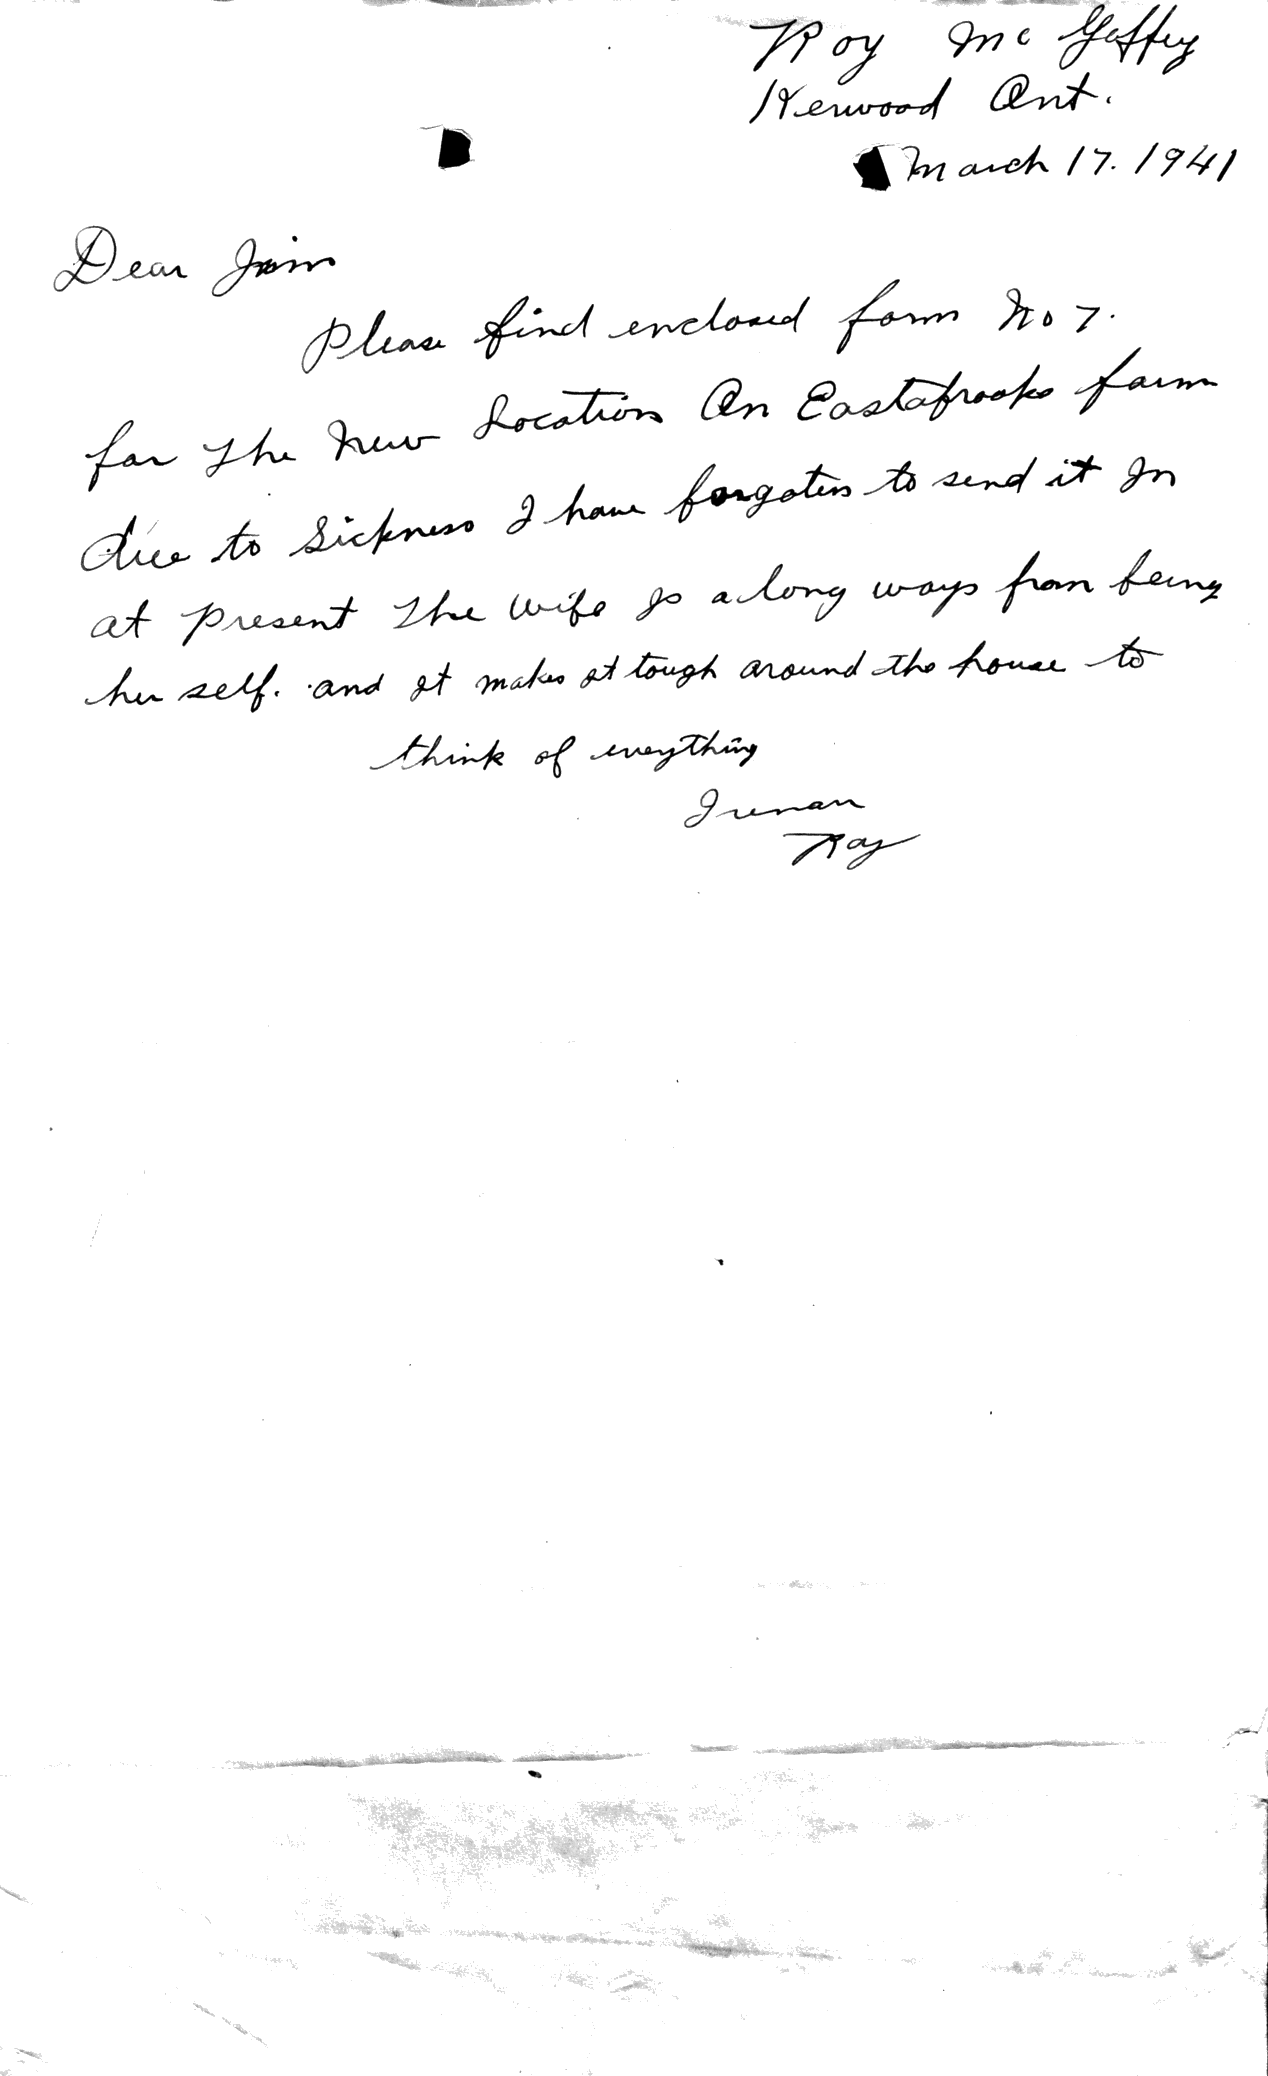 Roy McGaffey
Kerwood Ont.
March 17. 1941
Dear Jim
Please find enclosed form No 7.
for The New Location On Eastabrooks farm
due to Sickness I have forgoten to send it In
at Present The Wife Is a long ways from being
her self. and It makes It tough around the house to
think of everything
Roy